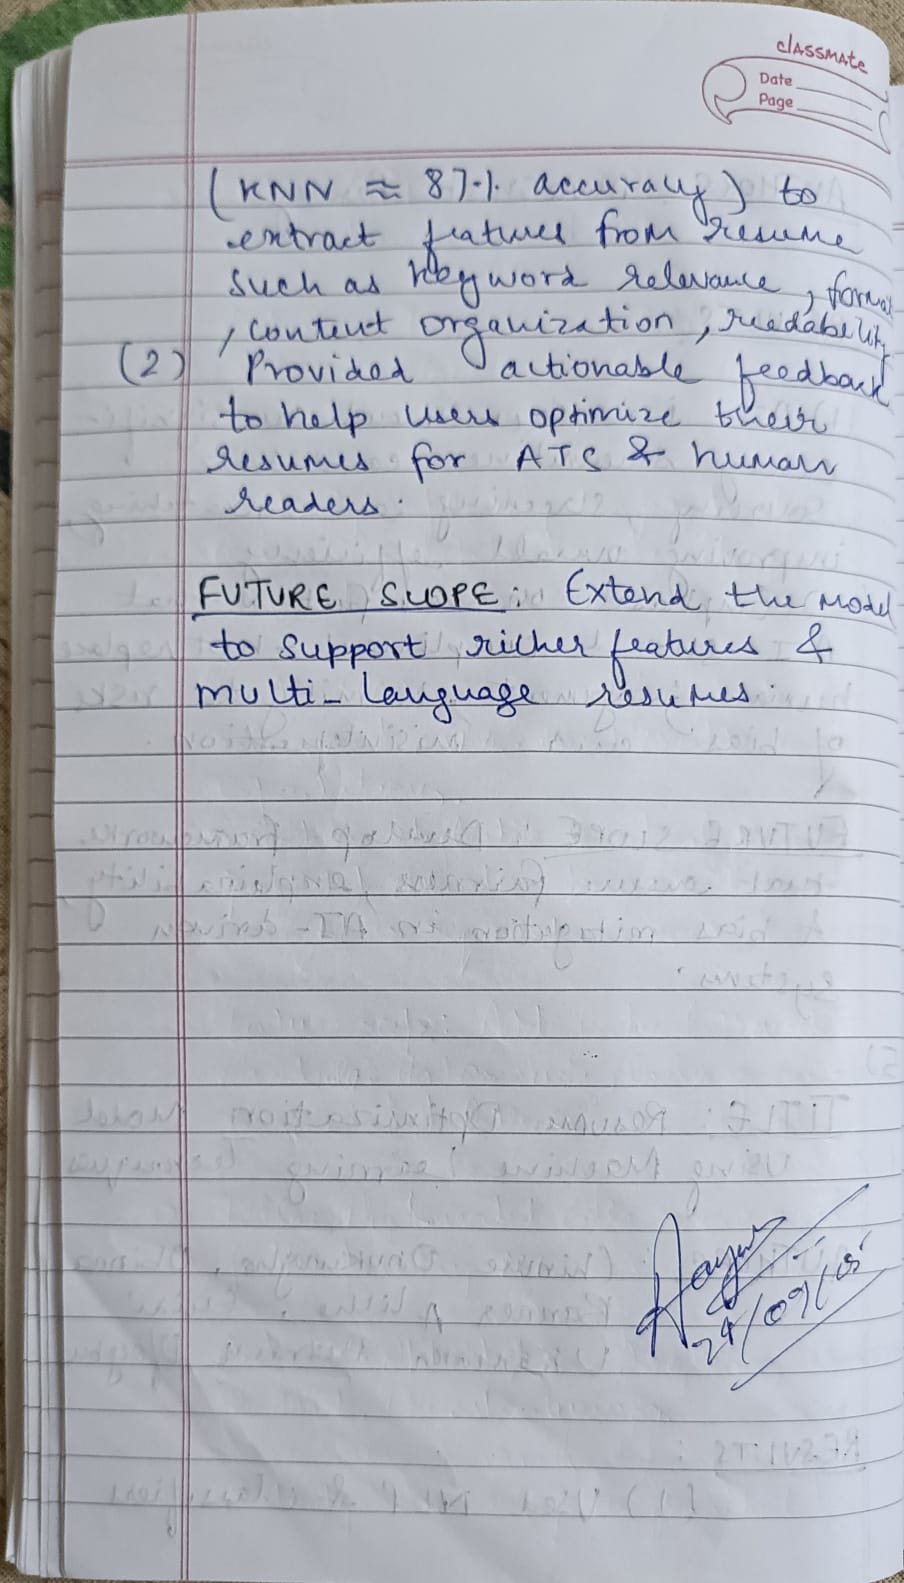 classmate
Date
Page
(KNN ≈ 87% accuracy) to
extract features from resume
such as keyword relevance, format
, content organization, readability
(2) Provided actionable feedback
to help users optimize their
resumes for ATS & human
readers.
FUTURE SCOPE: Extend the model
to support richer features &
multi-language resumes.